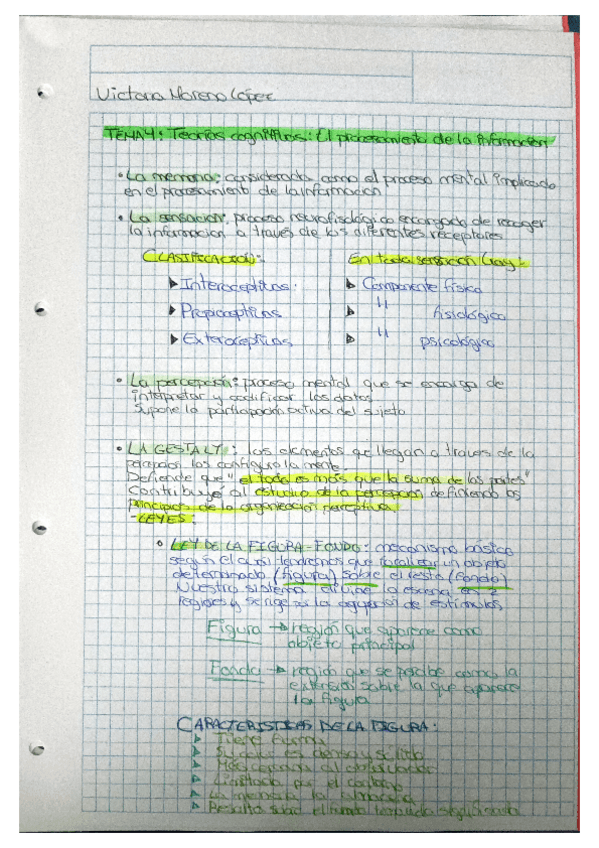 Victoria Moreno López
TEMA 4: Teorías cognitivas: El procesamiento de la información
• La memoria: considerada como el proceso mental implicado
en el procesamiento de la información
• La sensación: proceso neurofisiológico encargado de recoger
la información a través de los diferentes receptores
CLASIFICACIÓN: En toda sensación hay:
▸ Interoceptivas: ▸ Componente físico
▸ Propioceptivas ▸ " fisiológico
▸ Exteroceptivas ▸ " psicológico
• La percepción: proceso mental que se encarga de
interpretar y codificar los datos
Supone la participación activa del sujeto
• LA GESTALT: los elementos que llegan a través de la
percepción los configura la mente.
Defiende que "el todo es más que la suma de las partes"
Contribuye al estudio de la percepción definiendo los
principios de la organización perceptiva.
- LEYES:
• LEY DE LA FIGURA-FONDO: mecanismo básico
según el cual tendremos que focalizar un objeto
determinado (figura) sobre el resto (fondo)
Nuestro sistema divide la escena en 2
regiones y se rige por la agrupación de estímulos
Figura → región que aparece como
objeto principal
Fondo → región que se percibe como la
extensión sobre la que aparece
la figura
CARACTERISTICAS DE LA FIGURA:
Tiene forma
Su color es denso y sólido
Más cercana al observador
Limitada por el contorno
La memoria la
Resalta sobre el fondo